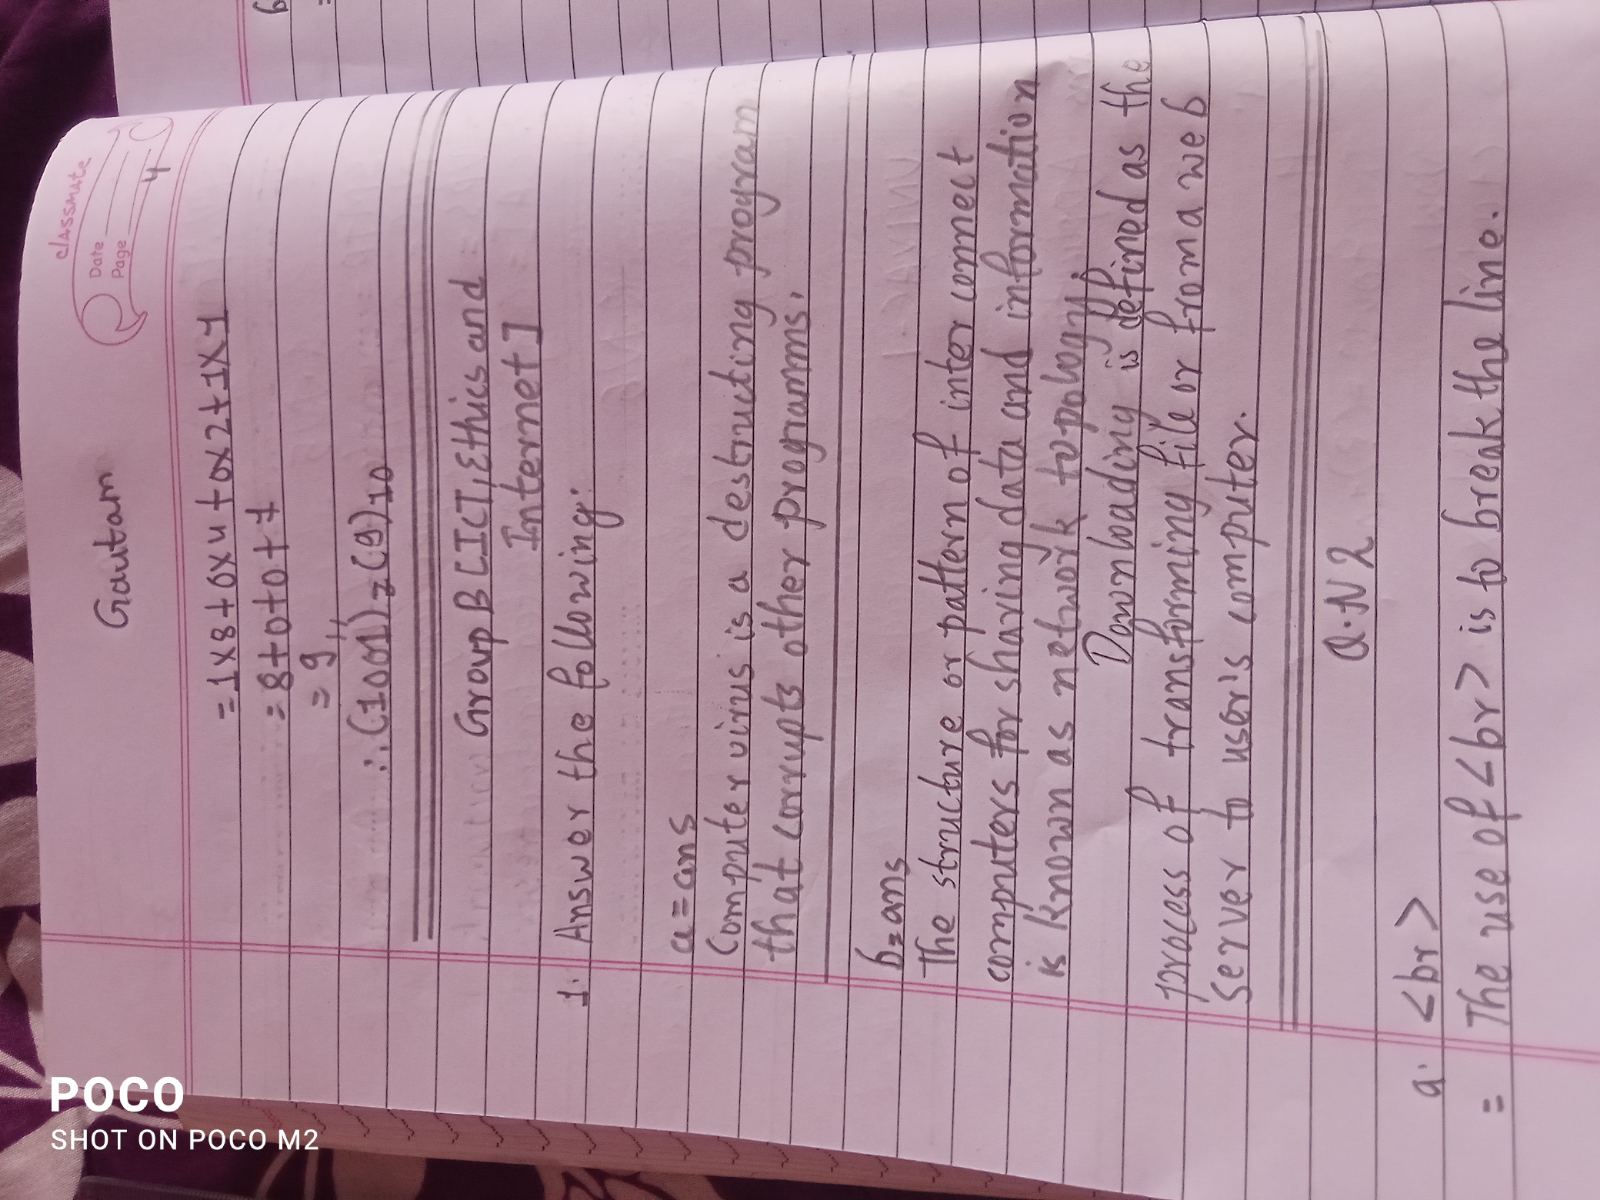 Gautam
classmate
Date
Page 4
= 1x8+0x4+0x2+1x1
= 8+0+0+1
= 9,,
∴ (1001)2 = (9)10
Group B [ICT, Ethics and
Internet]
1. Answer the following:
a = ans
Computer virus is a destructing program
that corrupts other programms.
b = ans
The structure or pattern of inter connect
computers for sharing data and information
is known as network topology.
Downloading is defined as the
process of transforming file or from a web
server to user's computer.
Q.N 2
a. <br>
= The use of <br> is to break the line.
POCO
SHOT ON POCO M2